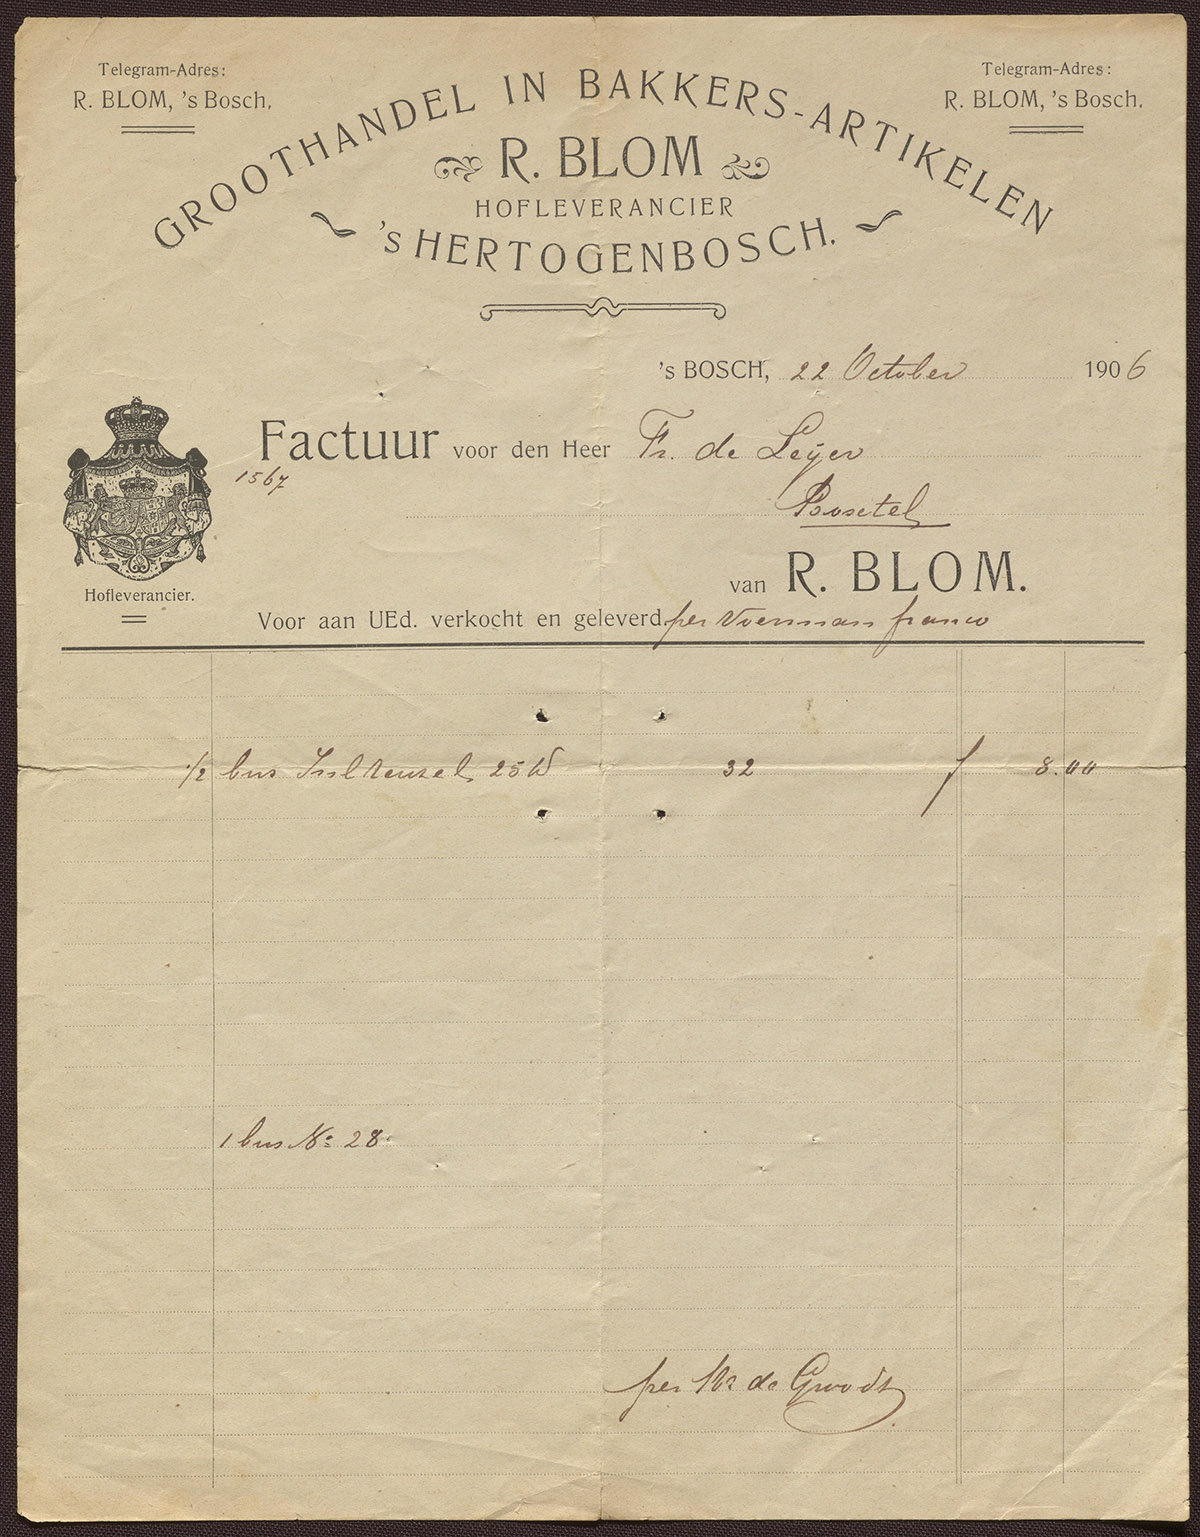 Telegram-Adres:
R. BLOM, 's Bosch.
Telegram-Adres:
R. BLOM, 's Bosch.
GROOTHANDEL IN BAKKERS-ARTIKELEN
R. BLOM
HOFLEVERANCIER
'S HERTOGENBOSCH.
's BOSCH, 22 October 1906
Factuur voor den Heer Fr. de Leijer
1567
Boxtel
Hofleverancier.
van R. BLOM.
Voor aan UEd. verkocht en geleverd per Voerman franco
1/2 bus 25 32 f 8.00
1 bus No 28.
per de Groodt